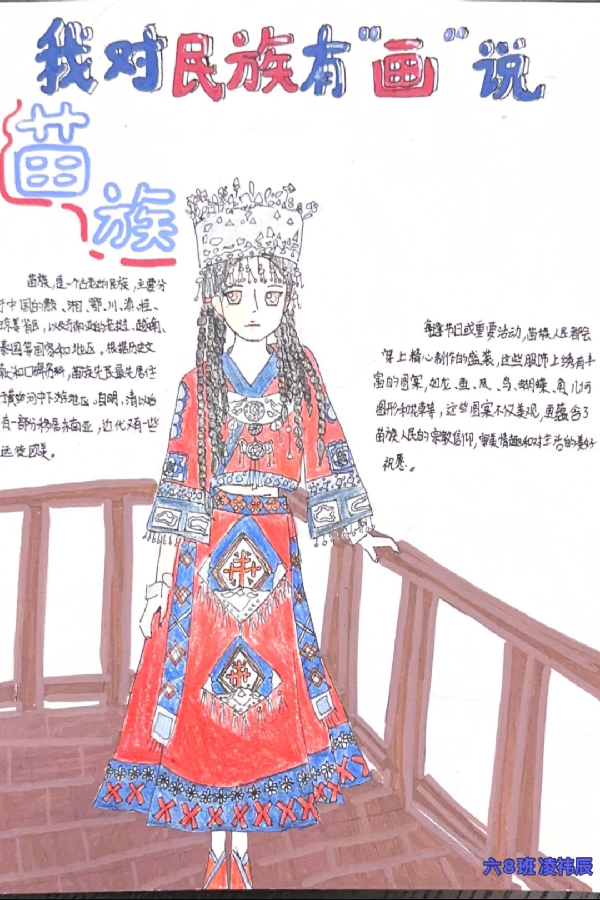 我对民族有“画”说
苗族
苗族,是一个古老的民族,主要分
于中国的黔、湘、鄂、川、滇、桂、
琼等省区,以及东南亚的老挝、越南、
泰国等国家和地区。根据历史文
献和口碑资料,苗族先民最先居住
于黄河中下游地区。自明、清以后
有一部分移居东南亚,近代又有一些
远徙欧美。
每逢节日或重要活动,苗族人民都会
穿上精心制作的盛装,这些服饰上绣有丰
富的图案,如龙、鱼、凤、鸟、蝴蝶、角、几何
图形和花草等,这些图案不仅美观,更蕴含了
苗族人民的宗教信仰,审美情趣和对生活的美好
祝愿。
六8班 凌祎辰